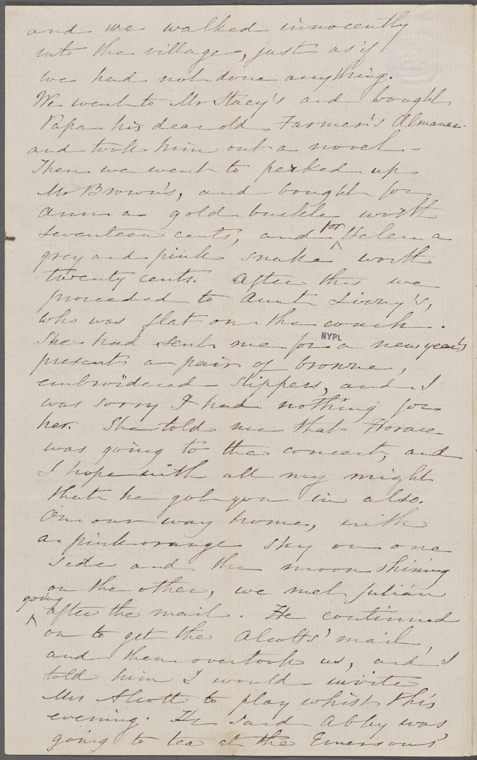 and we walked innocently
into the village, just as if
we had not done anything.
We went to Mr Stacy's and bought
Papa his dear old Farmer's Almanac
and took him out a novel -
Then we went to perked up
Mr Brown's, and bought for
Ann a gold buckle worth
seventeen cents, and for Helen a
grey and pink snake worth
twenty cents. After this we
proceeded to Aunt Lizzy's,
who was flat on the couch.
NYPL
She had sent me for a new year's
present a pair of bronze,
embroidered slippers, and I
was sorry I had nothing for
her. She told me that Horace
was going to the concert, and
I hope with all my might
that he got you in also.
On our way home, with
a pink orange sky on one
side and the moon shining
on the other, we met Julian
going after the mail. He continued
on to get the Alcotts' mail,
and then overtook us, and I
told him I would invite
Mrs Alcott to play whist this
evening. He said Abby was
going to tea at the Emersons'